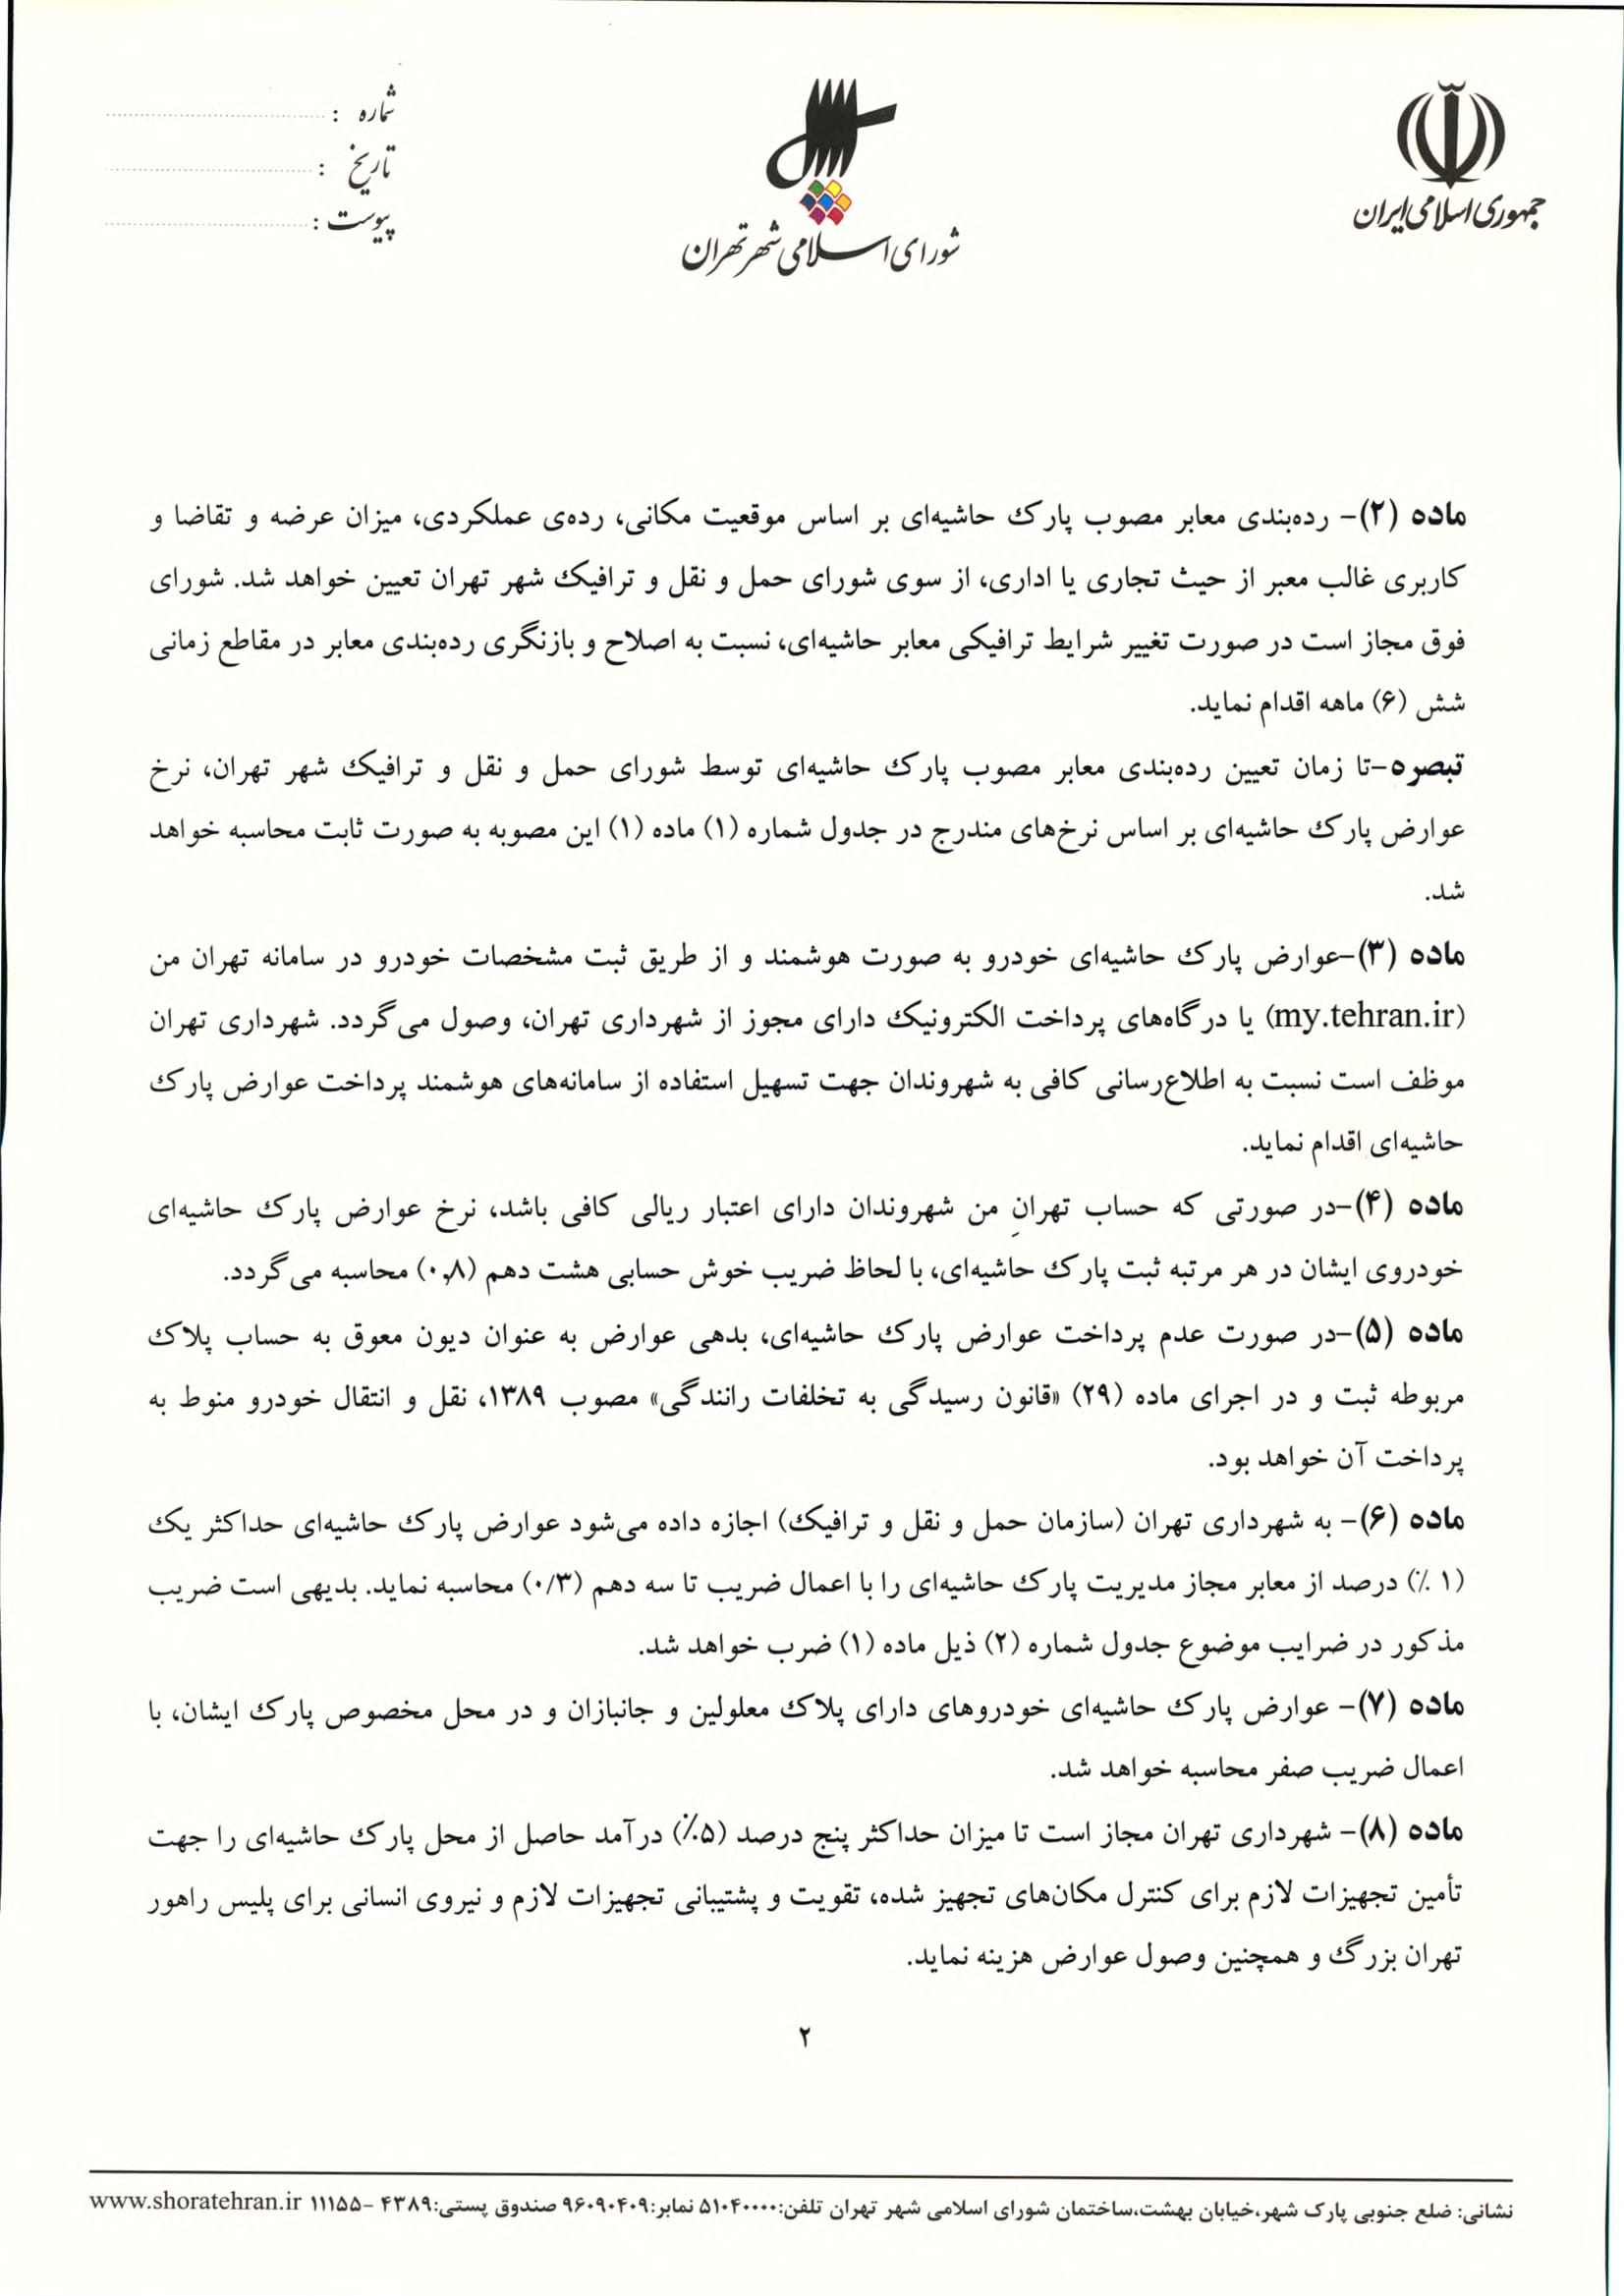 جمهوری اسلامی ایران
شورای اسلامی شهر تهران
شماره :
تاریخ :
پیوست :
ماده (۲)- رده‌بندی معابر مصوب پارک حاشیه‌ای بر اساس موقعیت مکانی، رده‌ی عملکردی، میزان عرضه و تقاضا و
کاربری غالب معبر از حیث تجاری یا اداری، از سوی شورای حمل و نقل و ترافیک شهر تهران تعیین خواهد شد. شورای
فوق مجاز است در صورت تغییر شرایط ترافیکی معابر حاشیه‌ای، نسبت به اصلاح و بازنگری رده‌بندی معابر در مقاطع زمانی
شش (۶) ماهه اقدام نماید.
تبصره-تا زمان تعیین رده‌بندی معابر مصوب پارک حاشیه‌ای توسط شورای حمل و نقل و ترافیک شهر تهران، نرخ
عوارض پارک حاشیه‌ای بر اساس نرخ‌های مندرج در جدول شماره (۱) ماده (۱) این مصوبه به صورت ثابت محاسبه خواهد
شد.
ماده (۳)-عوارض پارک حاشیه‌ای خودرو به صورت هوشمند و از طریق ثبت مشخصات خودرو در سامانه تهران من
(my.tehran.ir) یا درگاه‌های پرداخت الکترونیک دارای مجوز از شهرداری تهران، وصول می‌گردد. شهرداری تهران
موظف است نسبت به اطلاع‌رسانی کافی به شهروندان جهت تسهیل استفاده از سامانه‌های هوشمند پرداخت عوارض پارک
حاشیه‌ای اقدام نماید.
ماده (۴)-در صورتی که حساب تهرانِ من شهروندان دارای اعتبار ریالی کافی باشد، نرخ عوارض پارک حاشیه‌ای
خودروی ایشان در هر مرتبه ثبت پارک حاشیه‌ای، با لحاظ ضریب خوش حسابی هشت دهم (۰,۸) محاسبه می‌گردد.
ماده (۵)-در صورت عدم پرداخت عوارض پارک حاشیه‌ای، بدهی عوارض به عنوان دیون معوق به حساب پلاک
مربوطه ثبت و در اجرای ماده (۲۹) «قانون رسیدگی به تخلفات رانندگی» مصوب ۱۳۸۹، نقل و انتقال خودرو منوط به
پرداخت آن خواهد بود.
ماده (۶)- به شهرداری تهران (سازمان حمل و نقل و ترافیک) اجازه داده می‌شود عوارض پارک حاشیه‌ای حداکثر یک
(۱ ٪) درصد از معابر مجاز مدیریت پارک حاشیه‌ای را با اعمال ضریب تا سه دهم (۰/۳) محاسبه نماید. بدیهی است ضریب
مذکور در ضرایب موضوع جدول شماره (۲) ذیل ماده (۱) ضرب خواهد شد.
ماده (۷)- عوارض پارک حاشیه‌ای خودروهای دارای پلاک معلولین و جانبازان و در محل مخصوص پارک ایشان، با
اعمال ضریب صفر محاسبه خواهد شد.
ماده (۸)- شهرداری تهران مجاز است تا میزان حداکثر پنج درصد (۵٪) درآمد حاصل از محل پارک حاشیه‌ای را جهت
تأمین تجهیزات لازم برای کنترل مکان‌های تجهیز شده، تقویت و پشتیبانی تجهیزات لازم و نیروی انسانی برای پلیس راهور
تهران بزرگ و همچنین وصول عوارض هزینه نماید.
۲
نشانی: ضلع جنوبی پارک شهر،خیابان بهشت،ساختمان شورای اسلامی شهر تهران تلفن:۵۱۰۴۰۰۰۰ نمابر:۹۶۰۹۰۴۰۹ صندوق پستی:۴۳۸۹ -۱۱۱۵۵ www.shoratehran.ir